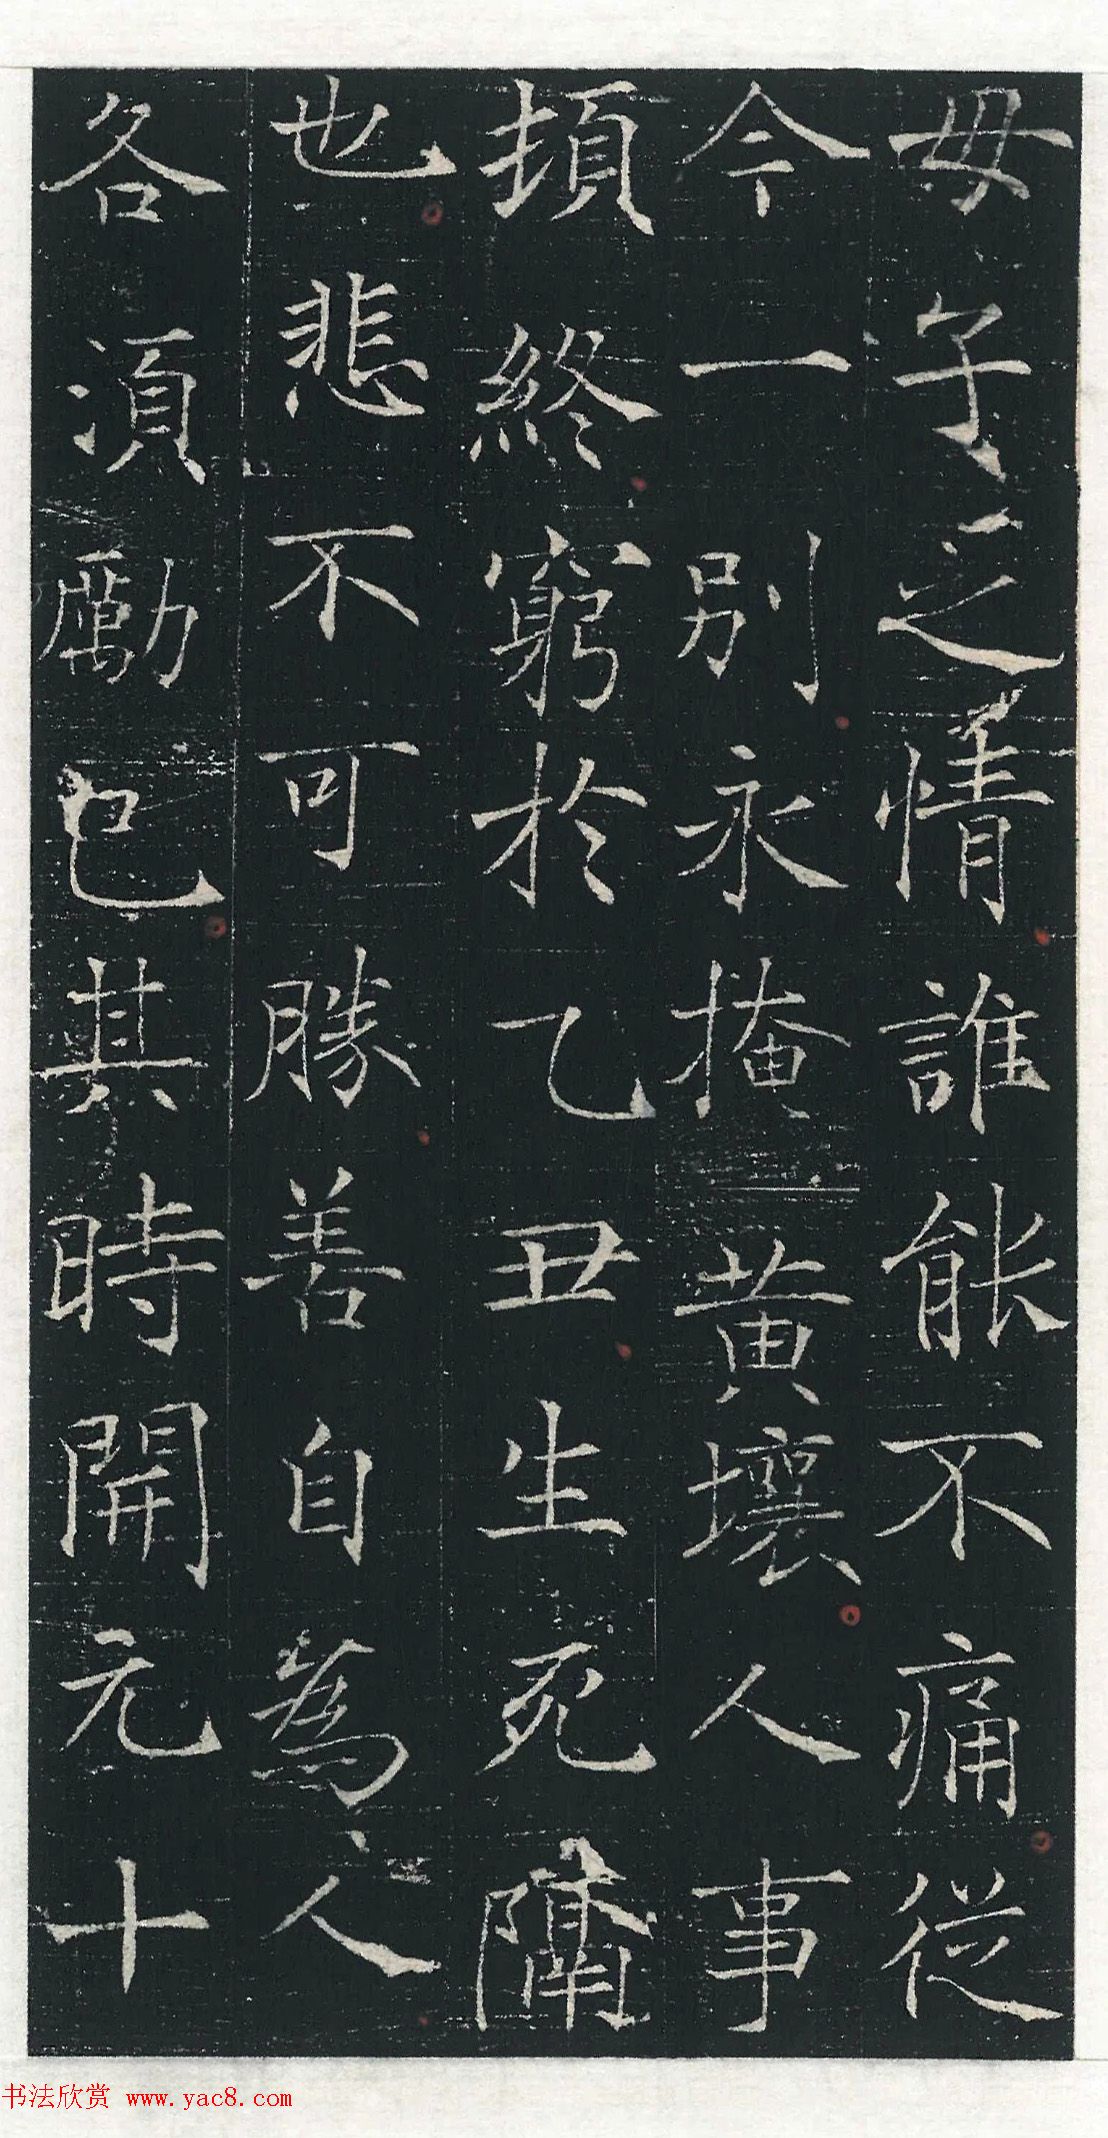 母子之情誰能不痛從
今一別永掩黃壤人事
頓終窮於乙丑生死隔
也悲不可勝善自為人
各須勵己其時開元十
书法欣赏 www.yac8.com